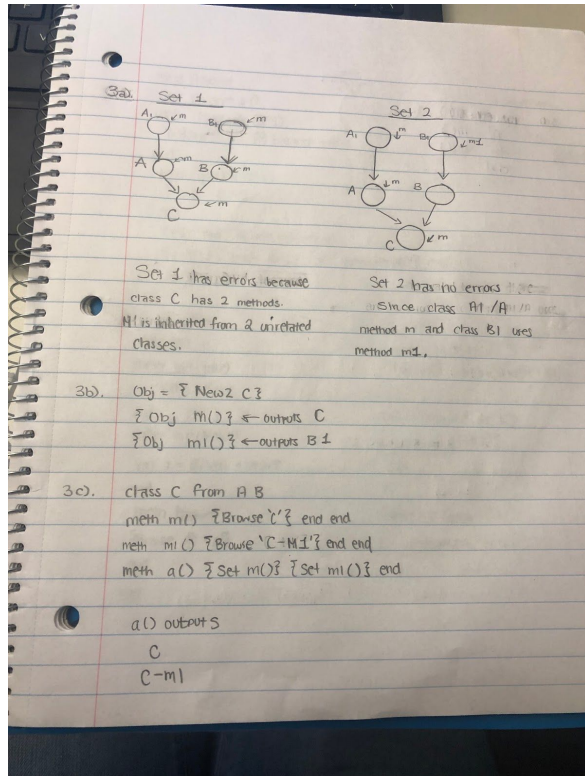 3a). Set 1
Set 2
A1 m
B1 m
A m
B m
C m
A1 m
B1 m1
A m
B
C m
Set 1 has errors because
class C has 2 methods.
M1 is inherited from 2 unrelated
classes.
Set 2 has no errors
since class A1/A
method m and class B1 uses
method m1.
3b). Obj = { New2 C}
{Obj m()} ← outputs C
{Obj m1()} ← outputs B1
3c). class C from A B
meth m() {Browse 'C'} end end
meth m1() {Browse 'C-M1'} end end
meth a() {Set m()} {Set m1()} end
a() outputs
C
C-m1